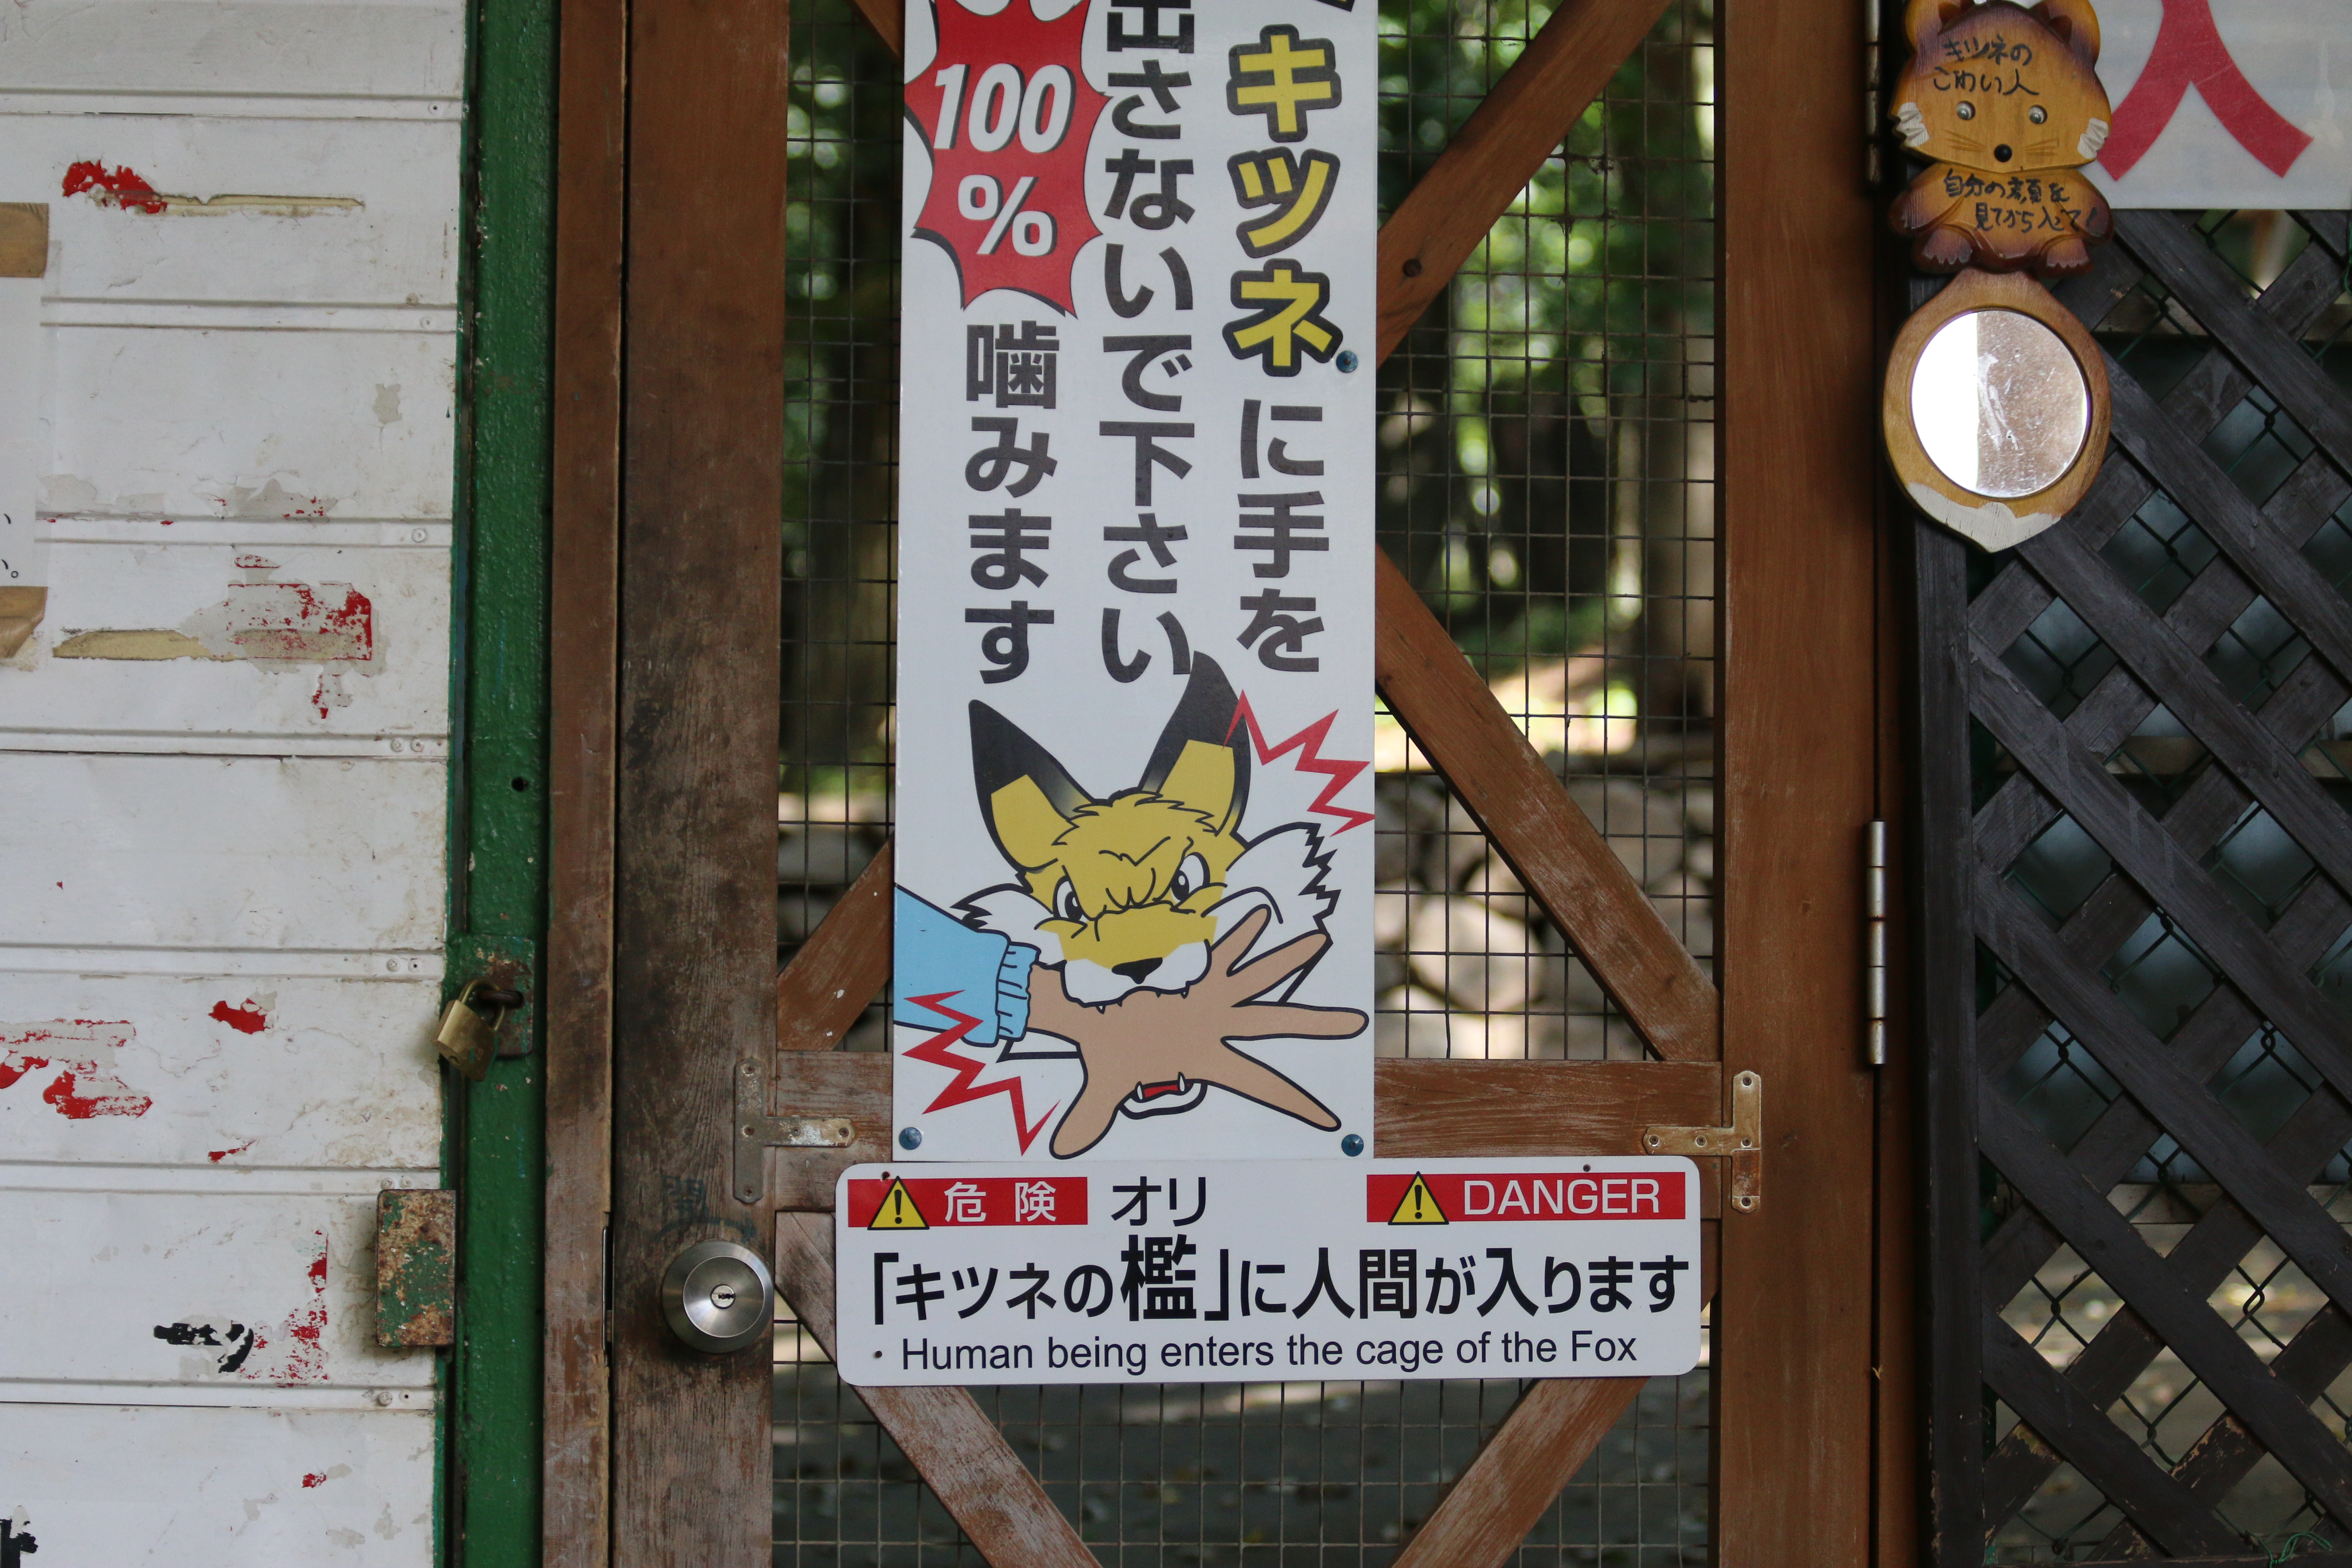 キツネに手を
出さないで下さい
100
%
噛みます
危険
オリ
DANGER
「キツネの檻」に人間が入ります
Human being enters the cage of the Fox
キツネの
こわい人
自分の顔を
見てから入って!